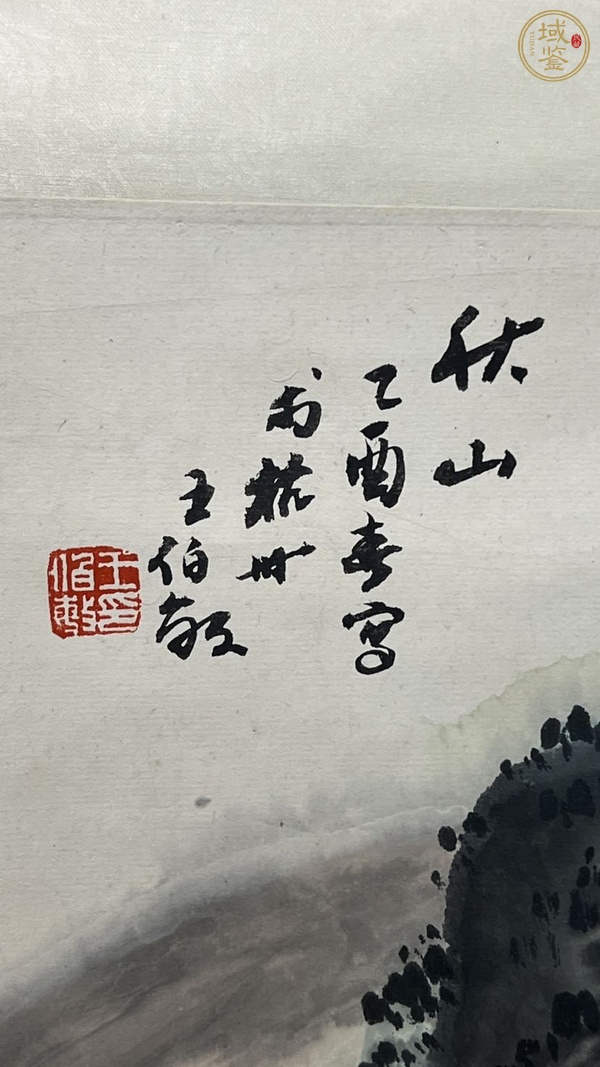 秋山
乙酉春写
於杭州
王伯敏
王印
伯敏
域鉴
YUJIAN